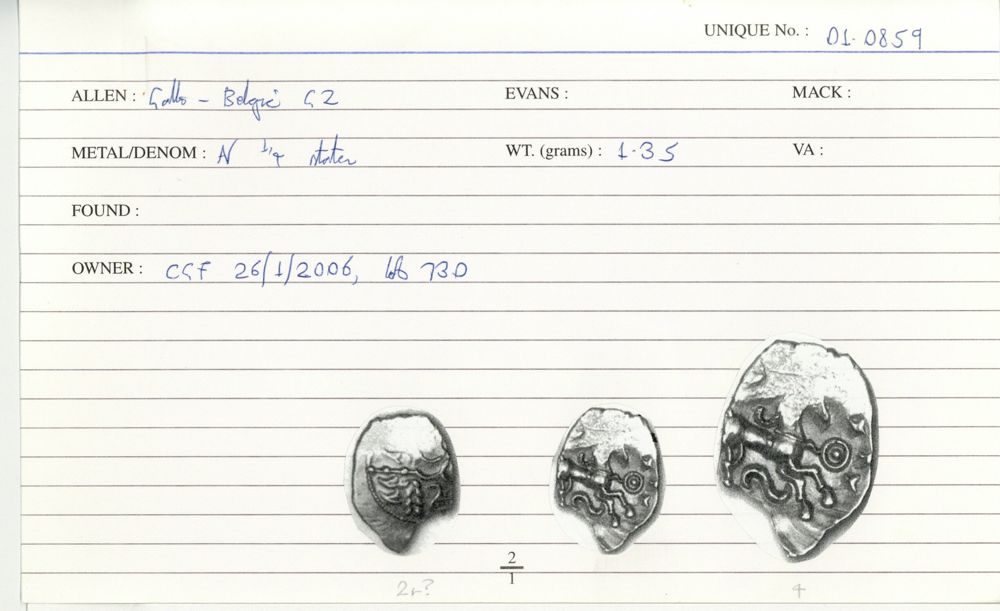 UNIQUE No. : 01.0859
ALLEN : Gallo - Belgic G2 EVANS : MACK :
METAL/DENOM : N 1/4 stater WT. (grams) : 1.35 VA :
FOUND :
OWNER : CGF 26/1/2006, lot 730
2
1
2r? 4